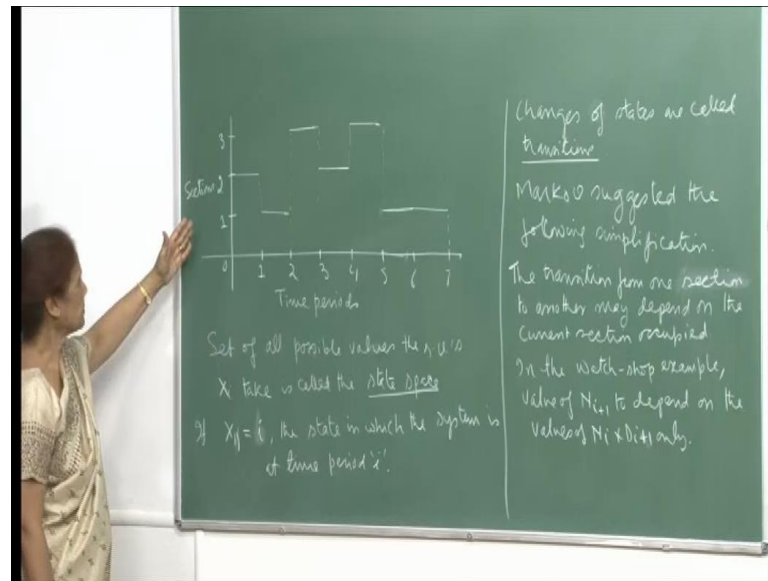 3
Section 2
1
0 1 2 3 4 5 6 7
Time periods
Set of all possible values the r.v.'s
Xi take is called the state space
If X = i, the state in which the system is
at time period 'i'.
Changes of states are called
transitions
Markov suggested the
following simplification.
The transition from one section
to another may depend on the
current section occupied
In the watch-shop example,
value of Ni+1 to depend on the
values of Ni & Di+1 only.